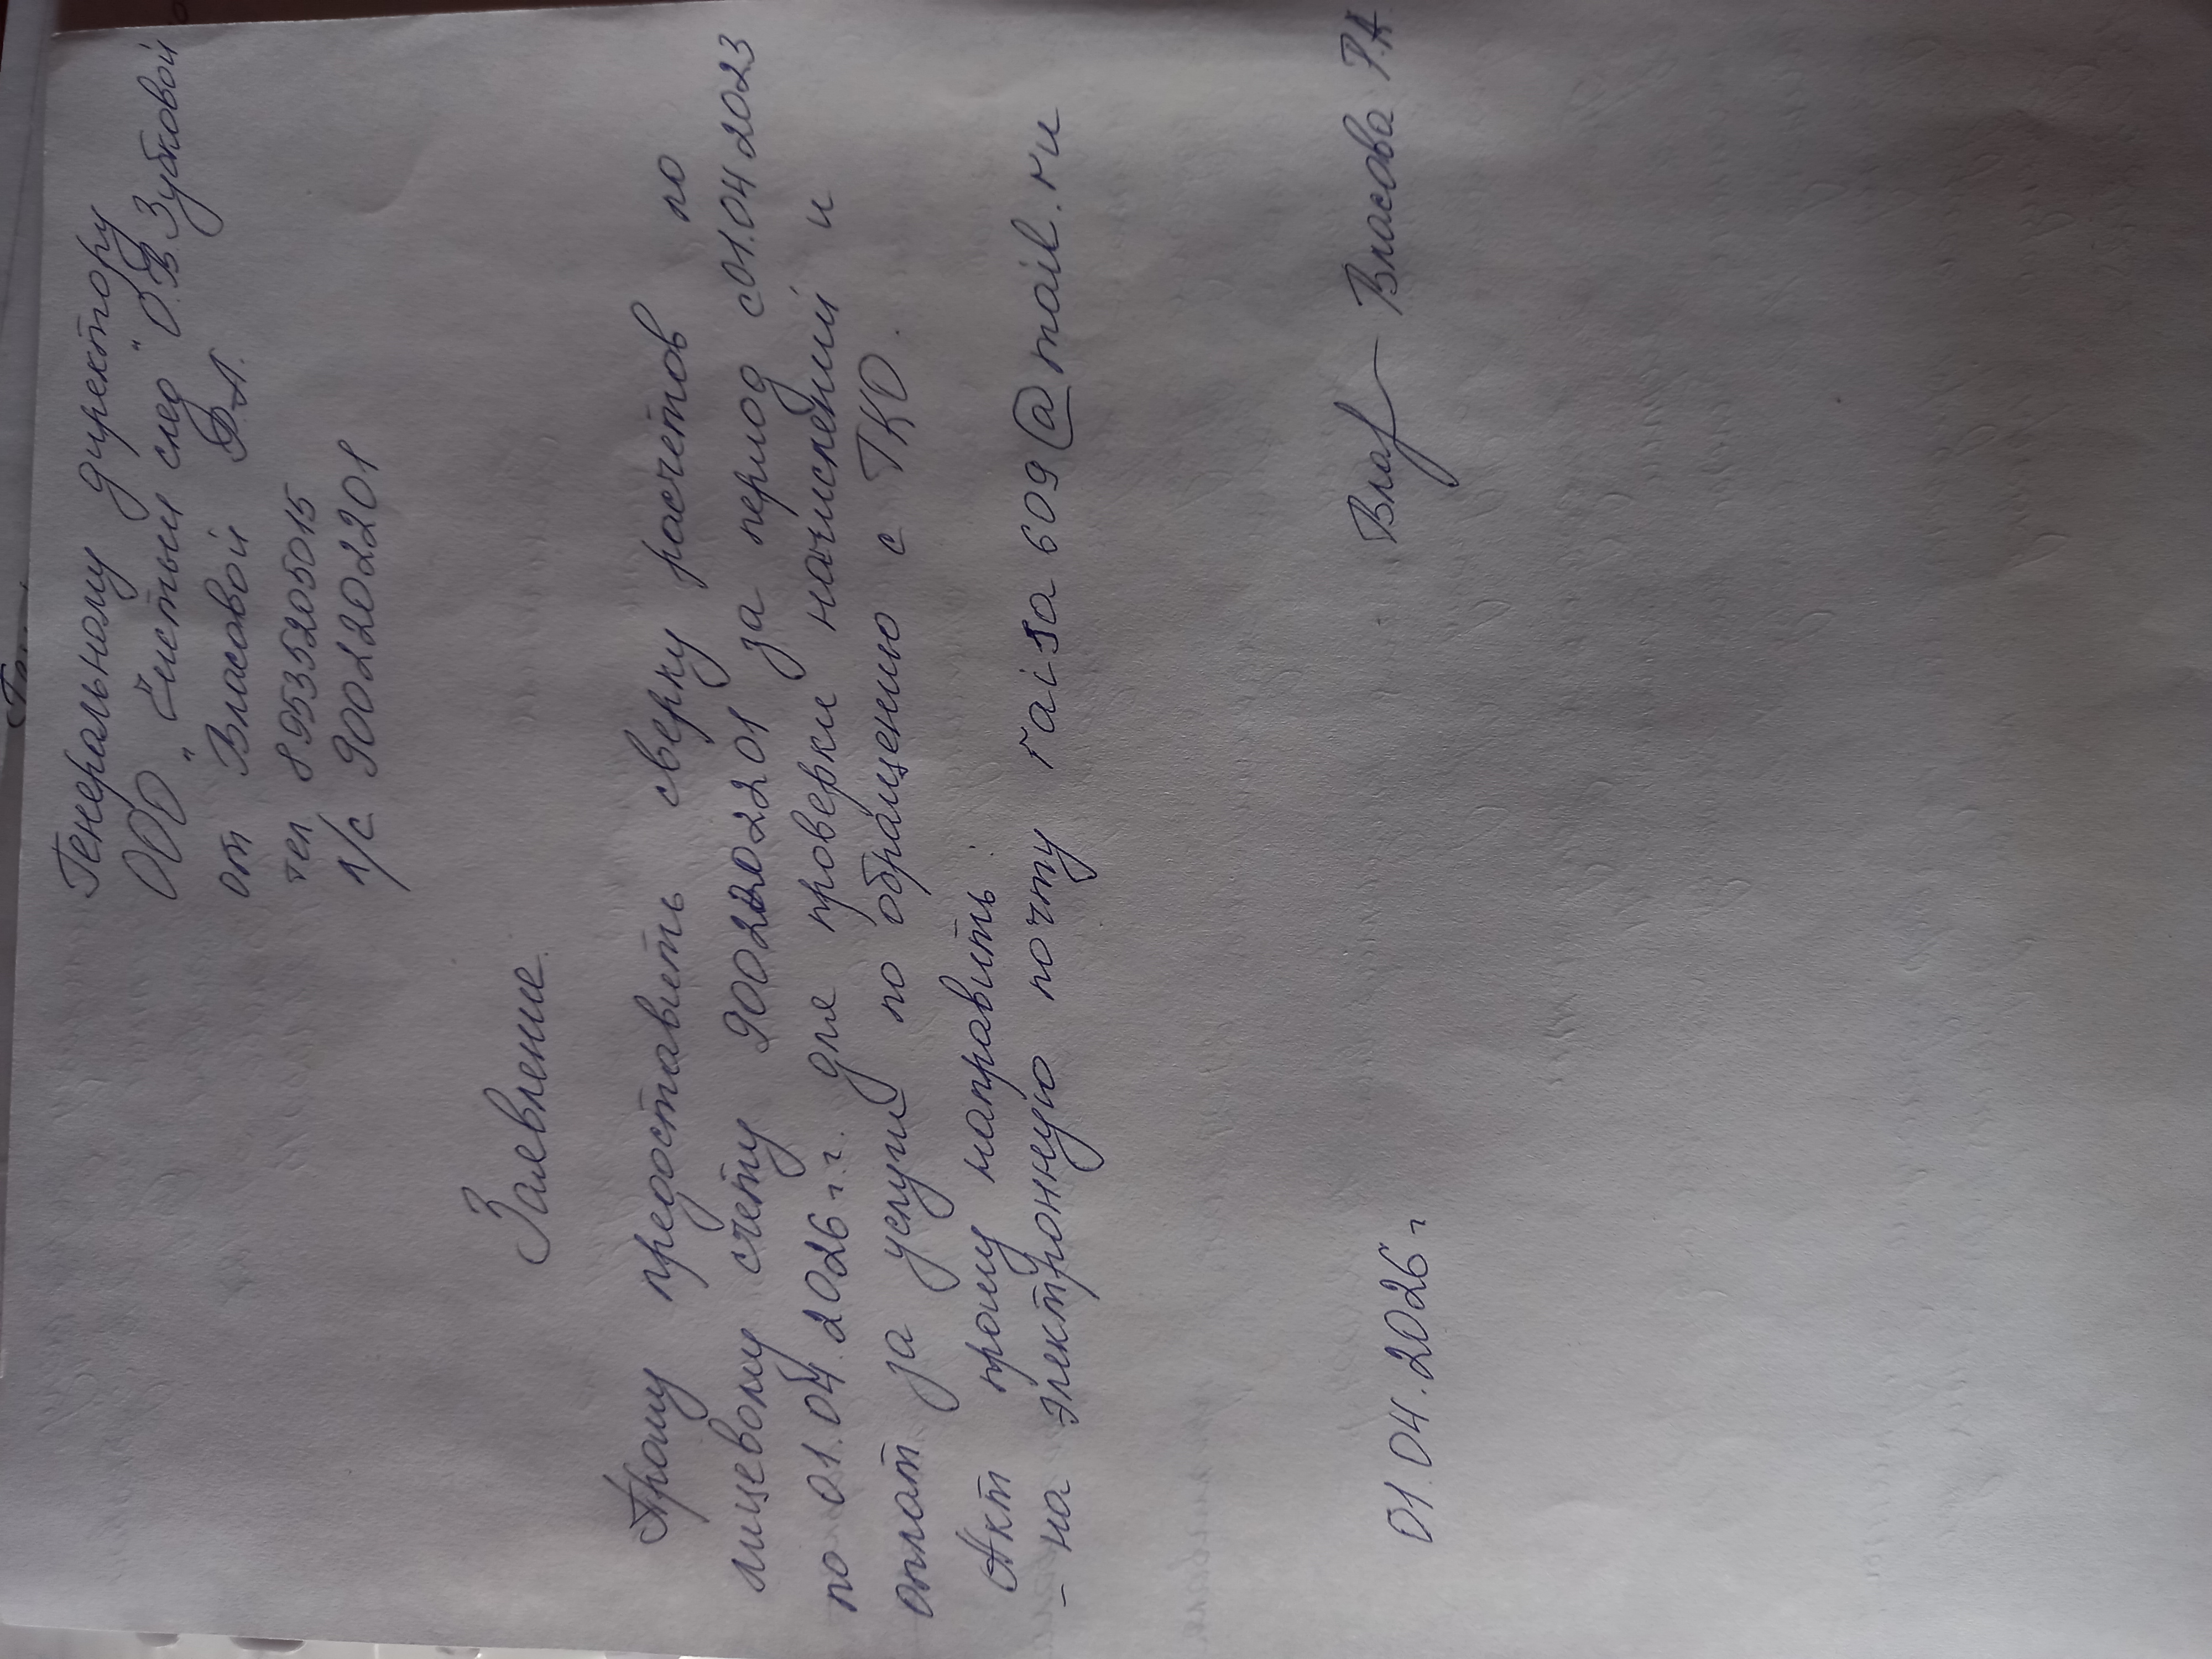 Генеральному директору
ООО "Чистый след" О.В. Зубковой
от Власовой Р.А.
тел 89535205015
л/с 9002202201
Заявление.
Прошу предоставить сверку расчётов по
лицевому счету 9002202201 за период с 01.04 2023
по 01.04.2026 г.г. для проверки начислений и
оплат за услуги по обращению с ТКО.
Акт прошу направить:
- на электронную почту raisa609@mail.ru
01.04.2026 г Власова Р.А